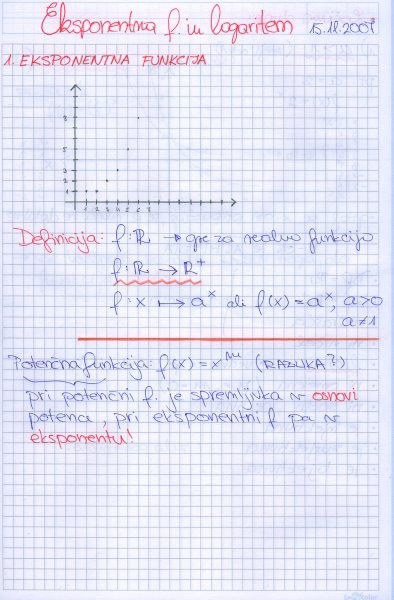 Eksponentna f. in logaritem 15.12.2007
1. EKSPONENTNA FUNKCIJA
8
5
3
2
1
1 2 3 4 5 6 7
Definicija: f: ℝ → gre za realno funkcijo
f: ℝ → ℝ⁺
f: x ↦ aˣ ali f(x) = aˣ, a>0
a≠1
Potenčna funkcija: f(x) = xⁿ (RAZLIKA?)
pri potenčni f. je spremljivka v osnovi
potence, pri eksponentni f. pa v
eksponentu!